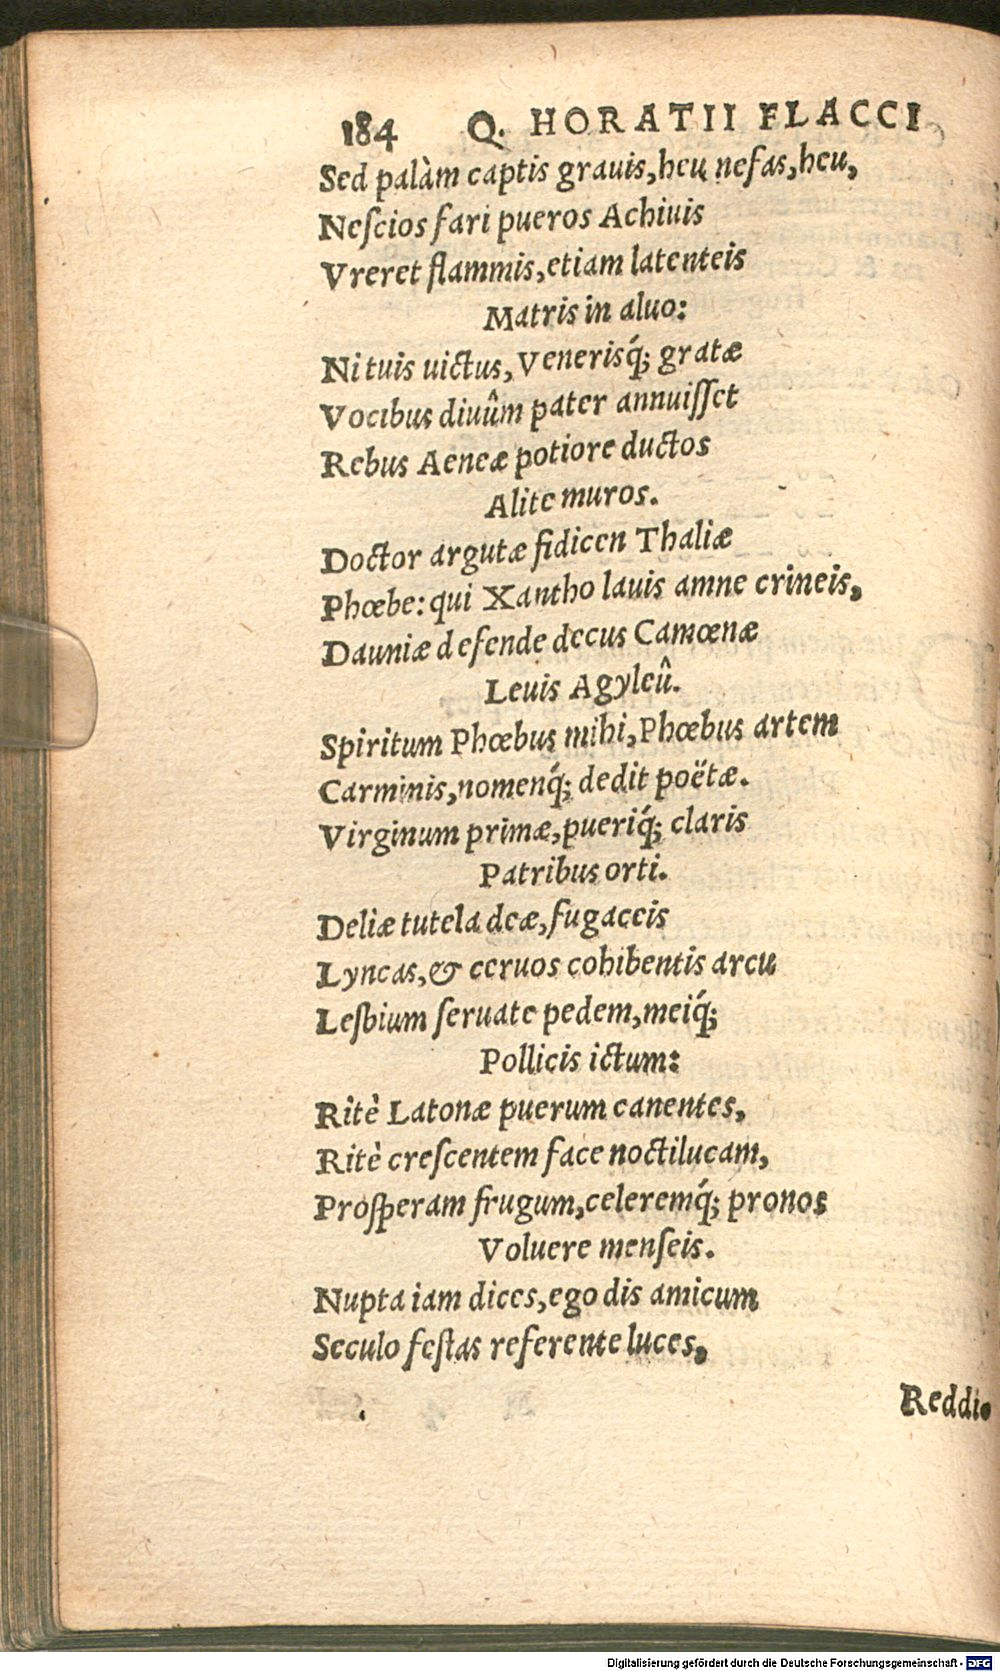 184 Q. HORATII FLACCI
Sed palàm captis grauis, heu nefas, heu,
Neſcios fari pueros Achiuis
Vreret flammis, etiam latenteis
Matris in aluo:
Ni tuis uictus, Venerisq́; gratæ
Vocibus diuûm pater annuiſſet
Rebus Aeneæ potiore ductos
Alite muros.
Doctor argutæ fidicen Thaliæ
Phœbe: qui Xantho lauis amne crineis,
Dauniæ defende decus Camœnæ
Leuis Agyleû.
Spiritum Phœbus mihi, Phœbus artem
Carminis, nomenq́; dedit poëtæ.
Virginum primæ, pueriq́; claris
Patribus orti.
Deliæ tutela deæ, fugaceis
Lyncas, & ceruos cohibentis arcu
Leſbium ſeruate pedem, meiq́;
Pollicis ictum:
Ritè Latonæ puerum canentes,
Ritè creſcentem face noctilucam,
Proſperam frugum, celeremq́; pronos
Voluere menſeis.
Nupta iam dices, ego dis amicum
Seculo feſtas referente luces,
Reddi
Digitalisierung gefördert durch die Deutsche Forschungsgemeinschaft - DFG